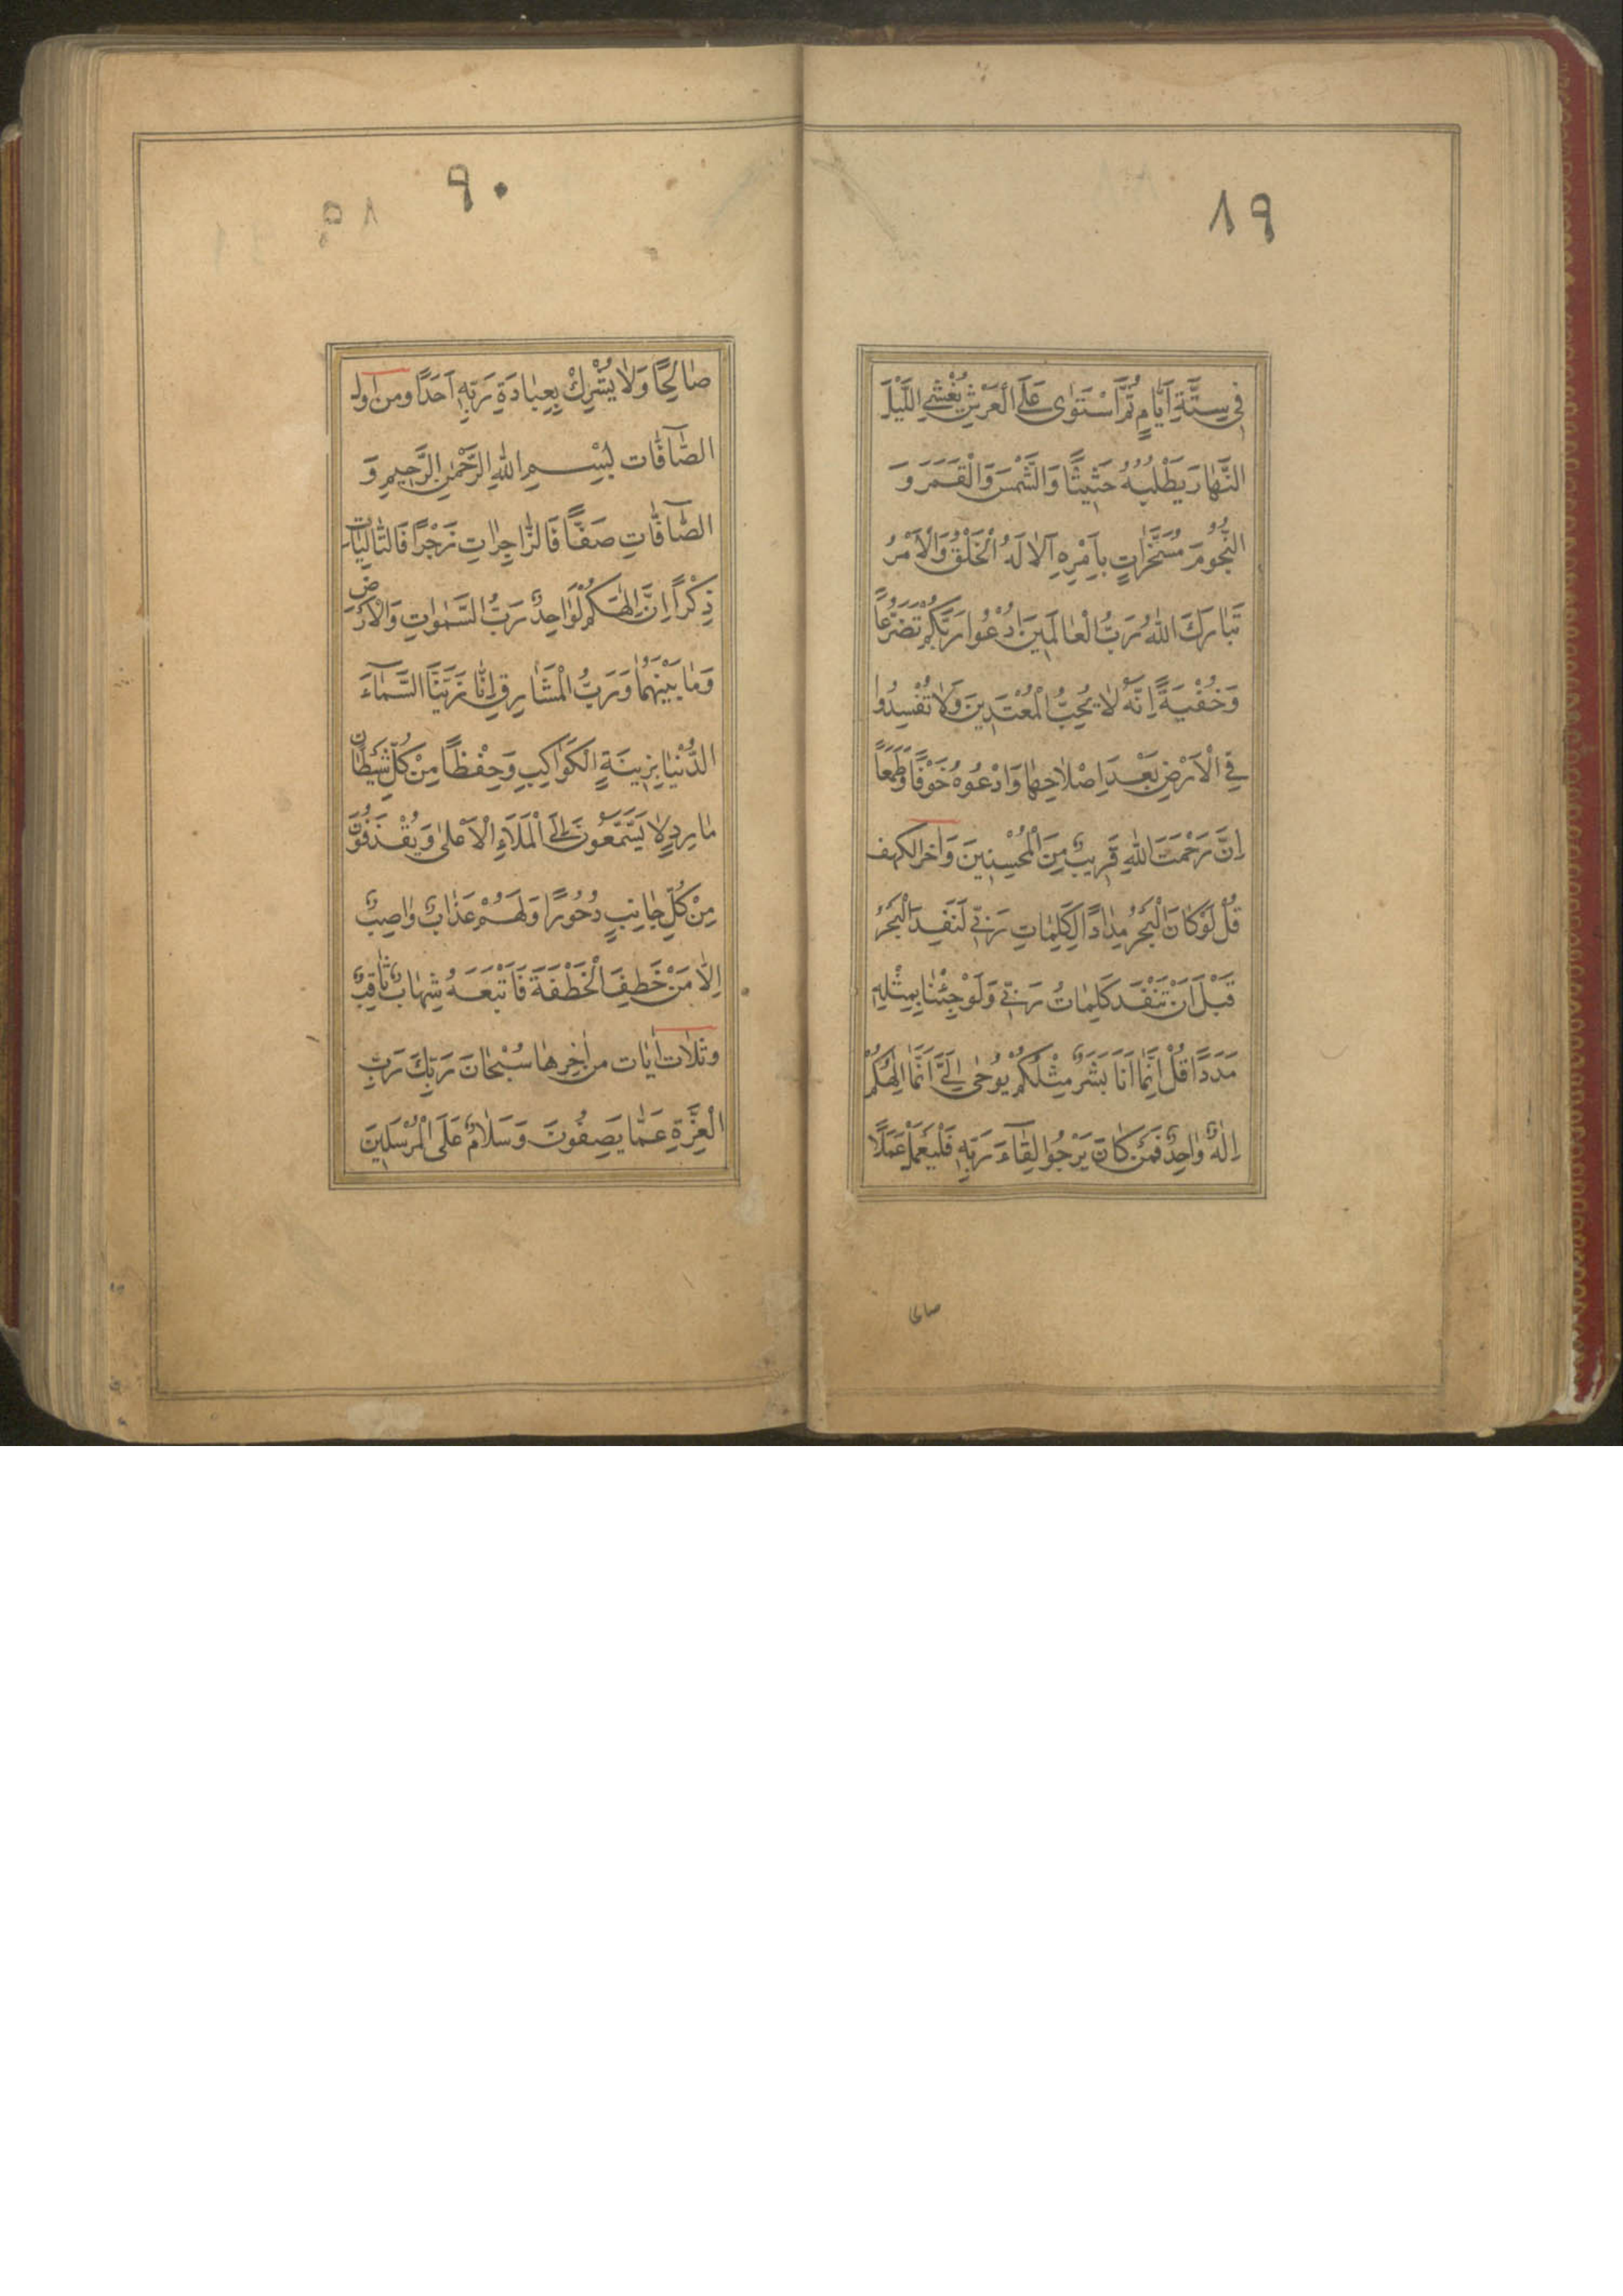 ٨٩
فِي سِتَّةِ اَيَّامٍ ثُمَّ اسْتَوٰى عَلَى الْعَرْشِ يُغْشِي اللَّيْلَ
النَّهٰارَ يَطْلُبُهُ حَثِيثًا وَالشَّمْسَ وَالْقَمَرَ وَ
النُّجُومَ مُسَخَّرٰاتٍ بِاَمْرِهِ اَلاٰ لَهُ الْخَلْقُ وَالْاَمْرُ
تَبٰارَكَ اللّٰهُ رَبُّ الْعٰالَمِينَ اُدْعُوا رَبَّكُمْ تَضَرُّعًا
وَخُفْيَةً اِنَّهُ لاٰ يُحِبُّ الْمُعْتَدِينَ وَلاٰ تُفْسِدُوا
فِي الْاَرْضِ بَعْدَ اِصْلاٰحِهٰا وَادْعُوهُ خَوْفًا وَطَمَعًا
اِنَّ رَحْمَتَ اللّٰهِ قَرِيبٌ مِنَ الْمُحْسِنِينَ وَاٰخر الكهف
قُلْ لَوْ كٰانَ الْبَحْرُ مِدٰادًا لِكَلِمٰاتِ رَبِّي لَنَفِدَ الْبَحْرُ
قَبْلَ اَنْ تَنْفَدَ كَلِمٰاتُ رَبِّي وَلَوْ جِئْنٰا بِمِثْلِهِ
مَدَدًا قُلْ اِنَّمٰا اَنَا بَشَرٌ مِثْلُكُمْ يُوحٰى اِلَيَّ اَنَّمٰا اِلٰهُكُمْ
اِلٰهٌ وٰاحِدٌ فَمَنْ كٰانَ يَرْجُوا لِقٰآءَ رَبِّهِ فَلْيَعْمَلْ عَمَلًا
صالحا
٩٠
٨٩
صٰالِحًا وَلاٰ يُشْرِكْ بِعِبٰادَةِ رَبِّهِ اَحَدًا ومن اول
الصّٰآفّٰات بِسْمِ اللّٰهِ الرَّحْمٰنِ الرَّحِيمِ وَ
الصّٰآفّٰاتِ صَفًّا فَالزّٰاجِرٰاتِ زَجْرًا فَالتّٰالِيٰاتِ
ذِكْرًا اِنَّ اِلٰهَكُمْ لَوٰاحِدٌ رَبُّ السَّمٰوٰاتِ وَالْاَرْضِ
وَمٰا بَيْنَهُمٰا وَرَبُّ الْمَشٰارِقِ اِنّٰا زَيَّنَّا السَّمٰآءَ
الدُّنْيٰا بِزِينَةٍ الْكَوٰاكِبِ وَحِفْظًا مِنْ كُلِّ شَيْطٰانٍ
مٰارِدٍ لاٰ يَسَّمَّعُونَ اِلَى الْمَلَاءِ الْاَعْلٰى وَيُقْذَفُونَ
مِنْ كُلِّ جٰانِبٍ دُحُورًا وَلَهُمْ عَذٰابٌ وٰاصِبٌ
اِلاّٰ مَنْ خَطِفَ الْخَطْفَةَ فَاَتْبَعَهُ شِهٰابٌ ثٰاقِبٌ
وثلاٰث اٰيٰات من اٰخِرِهٰا سُبْحٰانَ رَبِّكَ رَبِّ
الْعِزَّةِ عَمّٰا يَصِفُونَ وَسَلاٰمٌ عَلَى الْمُرْسَلِينَ